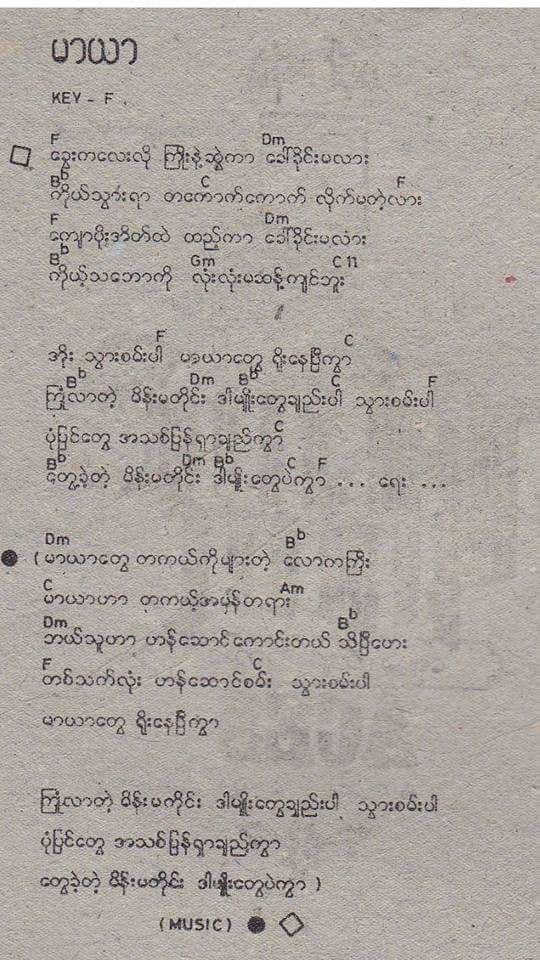 မာယာ
KEY - F
F Dm
ခွေးကလေးလို ကြိုးနဲ့ဆွဲကာ ခေါ်ခိုင်းမလား
Bb C F
ကိုယ်သွားရာ တကောက်ကောက် လိုက်မတဲ့လား
F Dm
ကျောပိုးအိတ်ထဲ ထည့်ကာ ခေါ်ခိုင်းမလား
Bb Gm C11
ကိုယ့်သဘောကို လုံးလုံးမဆန့်ကျင်ဘူး
F C
အိုး သွားစမ်းပါ မာယာတွေ ရိုးနေပြီကွာ
Bb Dm Bb C F
ကြုံလာတဲ့ မိန်းမတိုင်း ဒါမျိုးတွေချည်းပါ သွားစမ်းပါ
C
ပုံပြင်တွေ အသစ်ပြန်ရှာချည်ကွာ
Bb Dm Bb C F
တွေ့ခဲ့တဲ့ မိန်းမတိုင်း ဒါမျိုးတွေပဲကွာ ... ရေး ...
Dm Bb
( မာယာတွေ တကယ်ကိုများတဲ့ လောကကြီး
C Am
မာယာဟာ တကယ့်အမှန်တရား
Dm Bb
ဘယ်သူဟာ ဟန်ဆောင်ကောင်းတယ် သိပြီဟေး
F C
တစ်သက်လုံး ဟန်ဆောင်စမ်း သွားစမ်းပါ
မာယာတွေ ရိုးနေပြီကွာ
ကြုံလာတဲ့ မိန်းမတိုင်း ဒါမျိုးတွေချည်းပါ သွားစမ်းပါ
ပုံပြင်တွေ အသစ်ပြန်ရှာချည်ကွာ
တွေ့ခဲ့တဲ့ မိန်းမတိုင်း ဒါမျိုးတွေပဲကွာ )
(MUSIC)